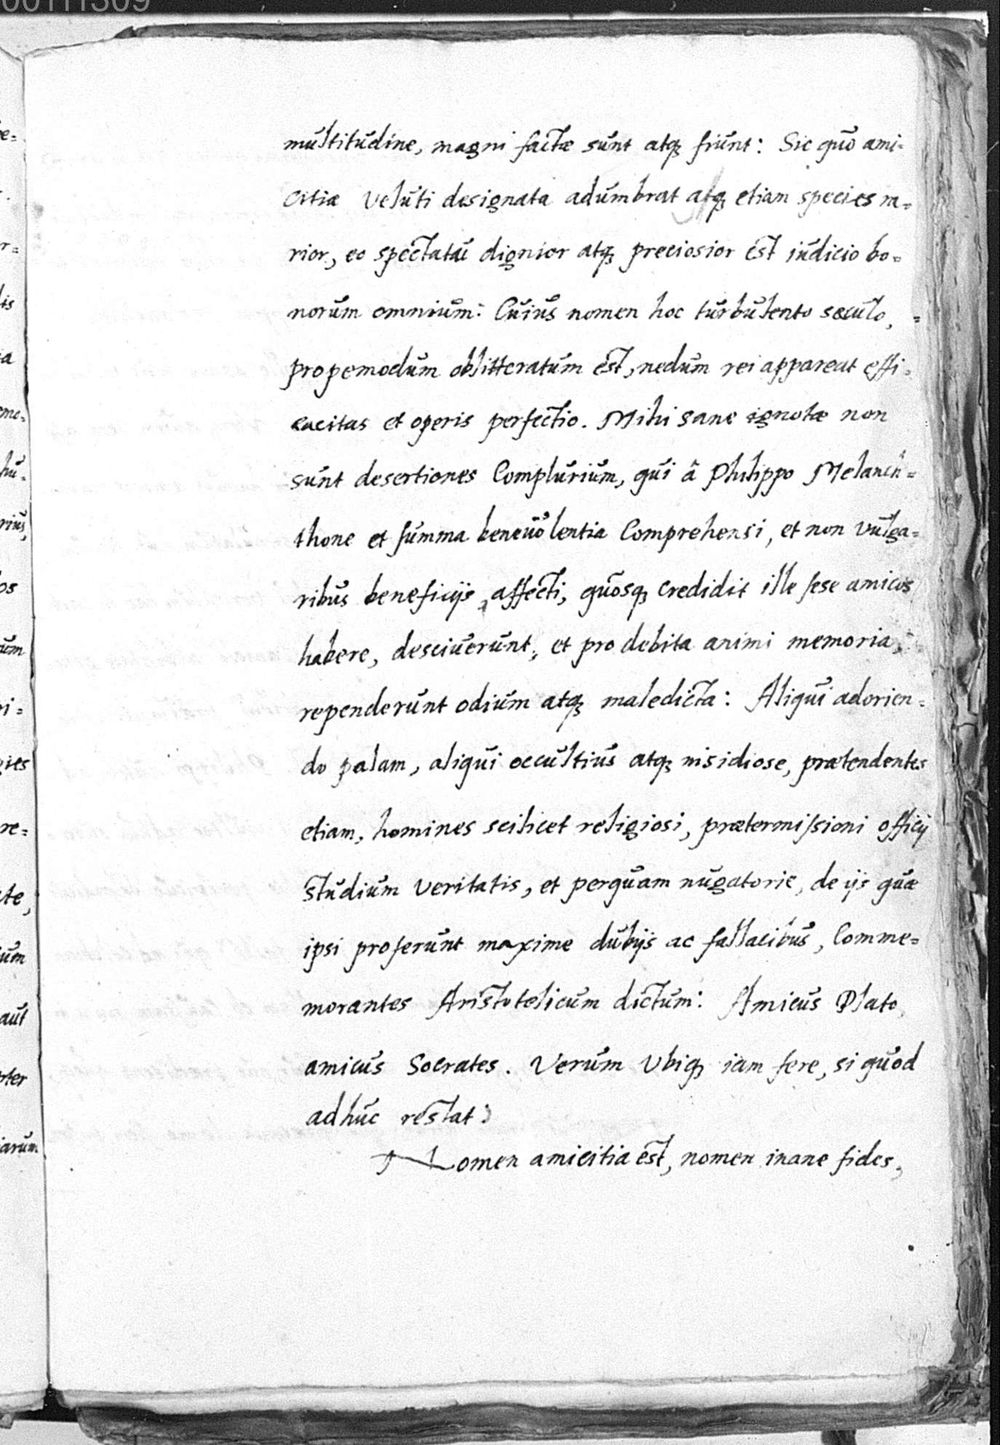 00111309
multitudine, magni factæ sunt atq3 fiunt: Sic quo ami-
citiæ veluti designata adumbrat atq3 etiam species ra-
rior, eo spectatu dignior atq3 preciosior est iudicio bo-
norum omnium: Cuius nomen hoc turbulento sæculo,
propemodum oblitteratum est, nedum rei appareat effi-
cacitas et operis perfectio. Mihi sane ignotæ non
sunt desertiones Complurium, qui â Philippo Melanch-
thone et summa beneuolentia Comprehensi, et non vulga-
ribus beneficijs affecti, quosq3 credidit ille sese amicos
habere, desciuerunt, et pro debita animi memoria,
rependerunt odium atq3 maledicta: Aliqui adorien-
do palam, aliqui occultius atq3 insidiose, prætendentes
etiam, homines scilicet religiosi, prætermissioni officij
studium veritatis, et perquam nugatorie, de ijs quæ
ipsi proferunt maxime dubijs ac fallacibus, Comme-
morantes Aristotelicum dictum: Amicus Plato,
amicus Socrates. Verum Vbiq3 iam fere, si quod
adhuc restat:
Nomen amicitia est, nomen inane fides,